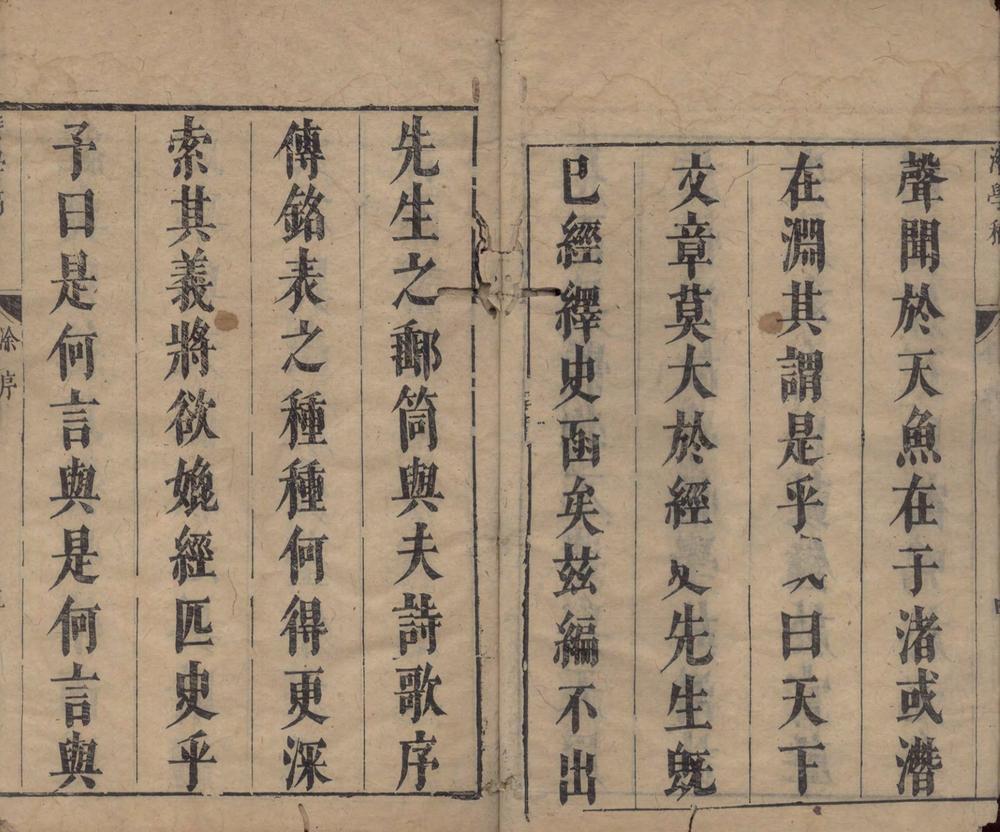 聲聞於天魚在于渚或潛
在淵其謂是乎曰天下
文章莫大於經史先生旣
已經繹史函矣茲編不出
先生之郵筒與夫詩歌序
傳銘表之種種何得更深
索其義將欲媲經匹史乎
予曰是何言與是何言與
徐序